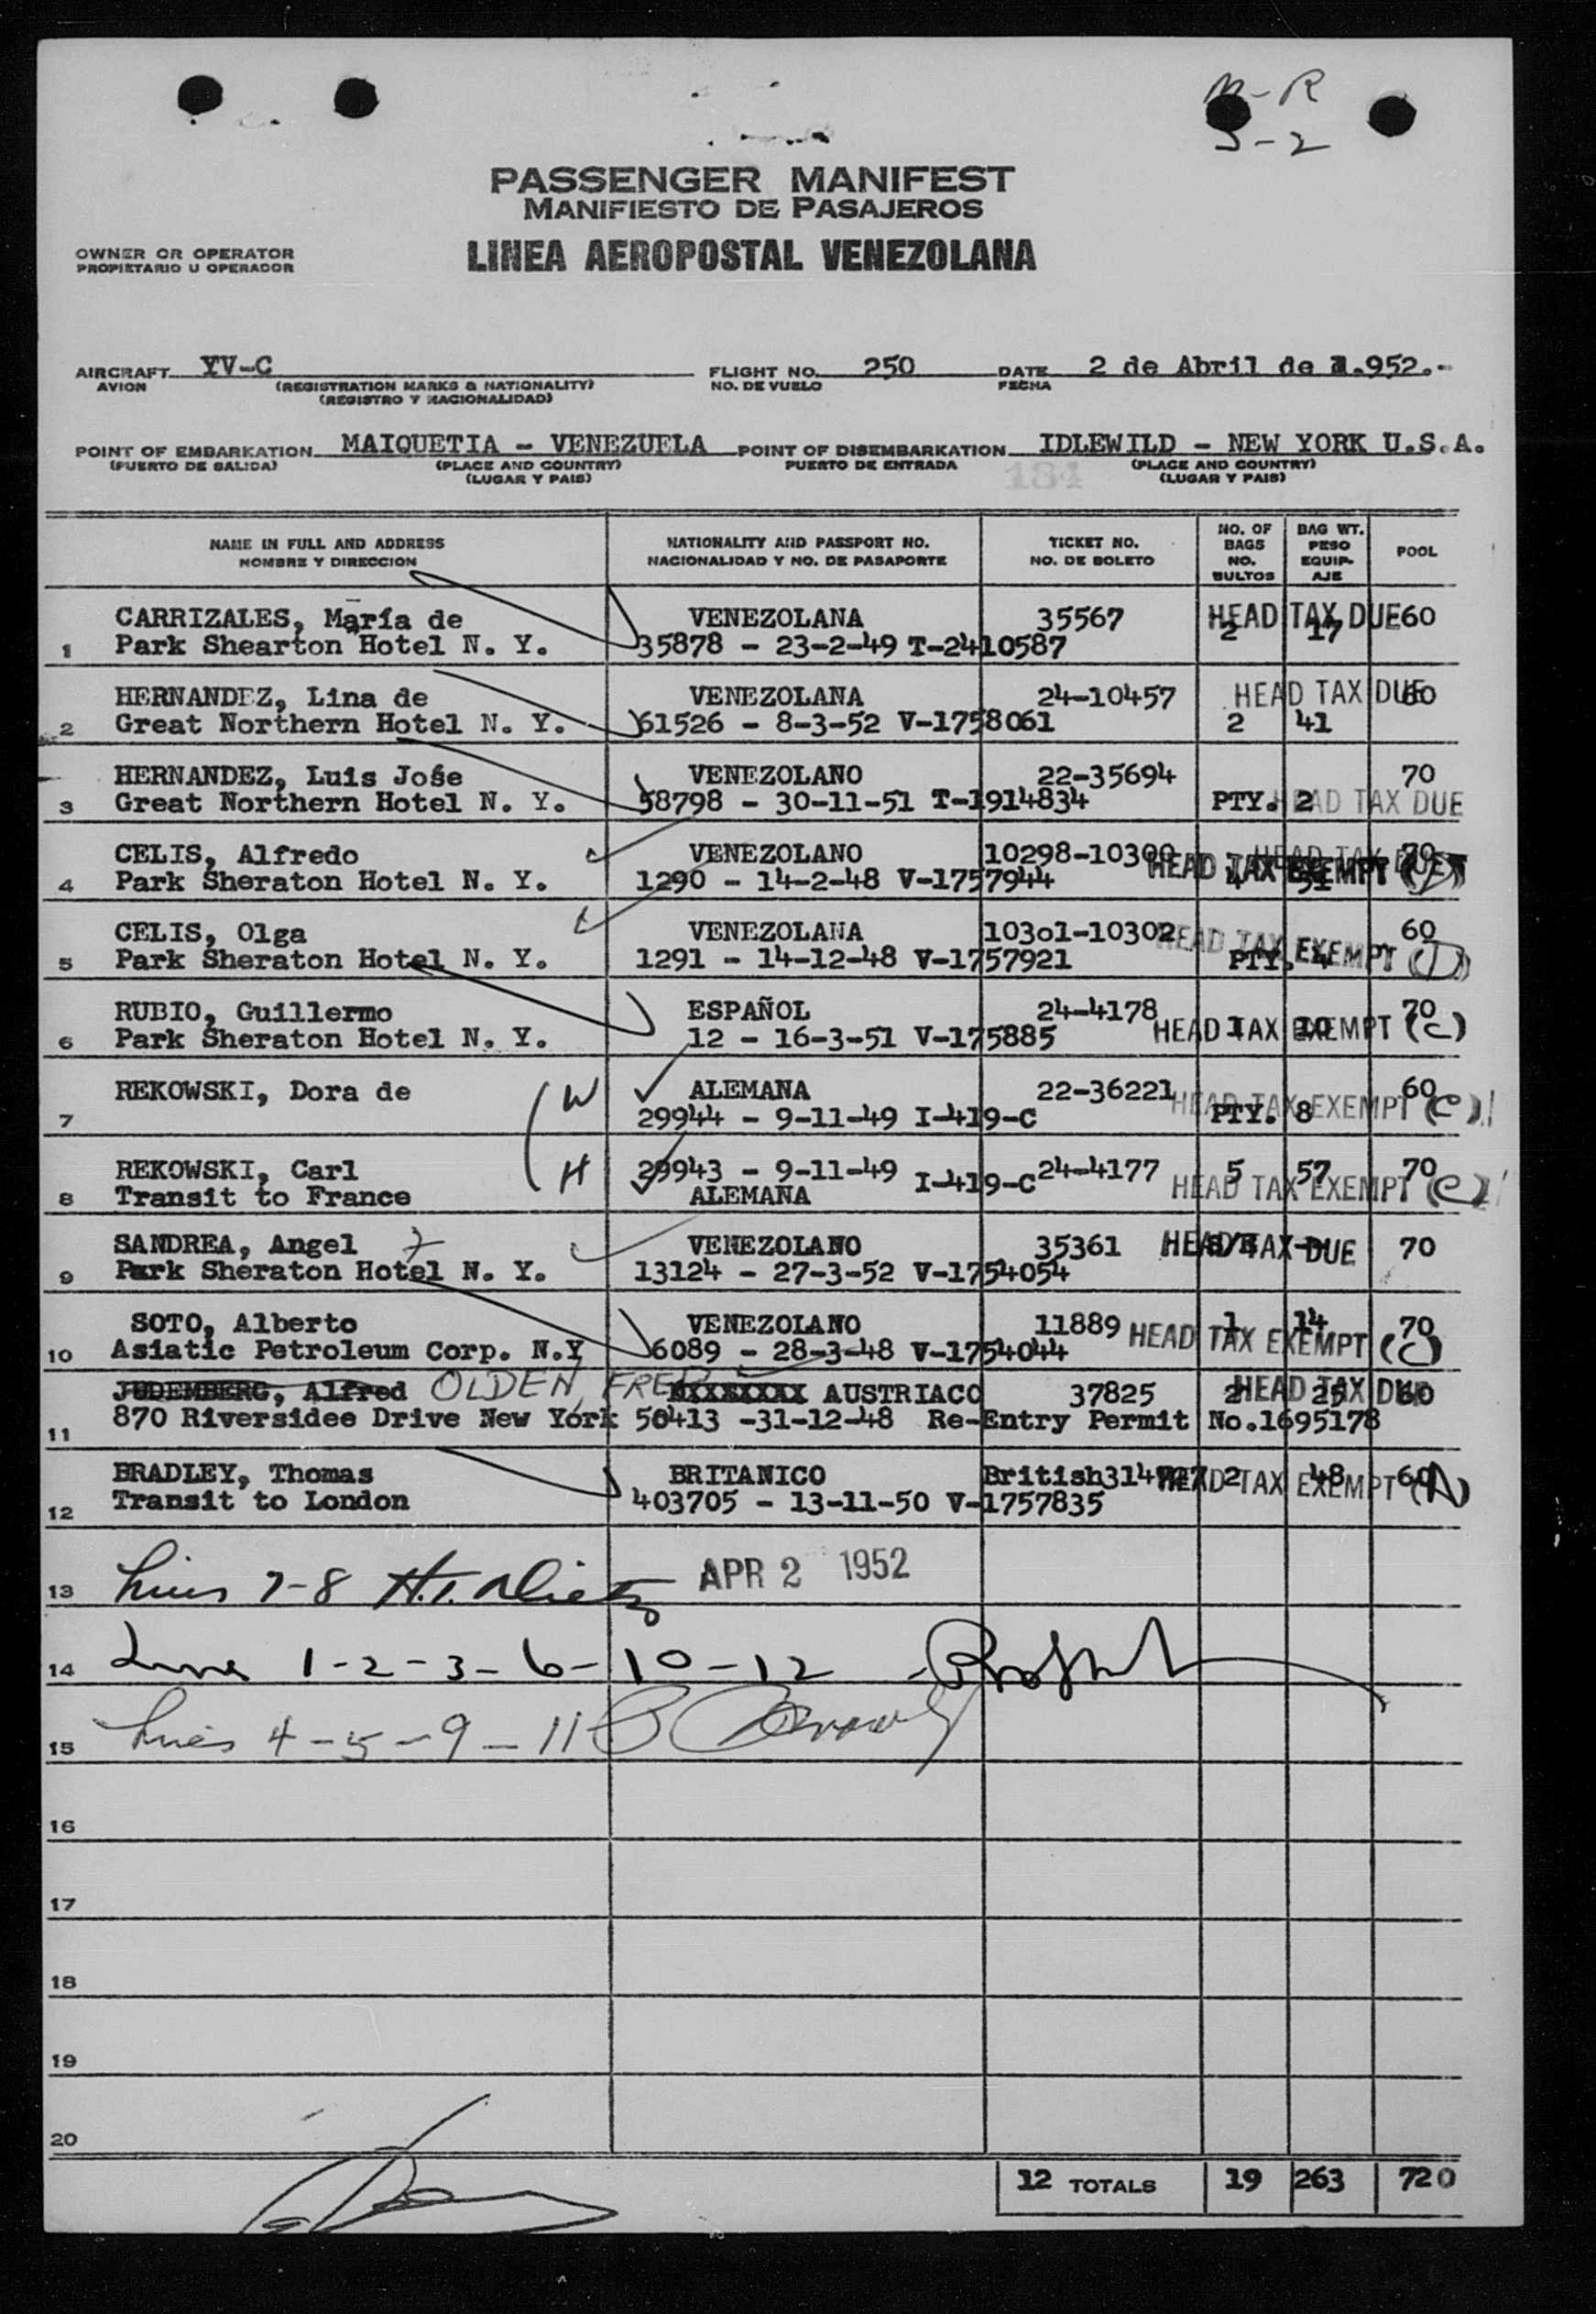 M-R
S-2
PASSENGER MANIFEST
MANIFIESTO DE PASAJEROS
OWNER OR OPERATOR
PROPIETARIO U OPERADOR
LINEA AEROPOSTAL VENEZOLANA
AIRCRAFT YV-C FLIGHT NO. 250 DATE 2 de Abril de 1.952.-
AVION (REGISTRATION MARKS & NATIONALITY) NO. DE VUELO FECHA
(REGISTRO Y NACIONALIDAD)
POINT OF EMBARKATION MAIQUETIA - VENEZUELA POINT OF DISEMBARKATION IDLEWILD - NEW YORK U.S.A.
(PUERTO DE SALIDA) (PLACE AND COUNTRY) PUERTO DE ENTRADA (PLACE AND COUNTRY)
(LUGAR Y PAIS) 184 (LUGAR Y PAIS)
NAME IN FULL AND ADDRESS NATIONALITY AND PASSPORT NO. TICKET NO. NO. OF BAGS BAG WT. POOL
NOMBRE Y DIRECCION NACIONALIDAD Y NO. DE PASAPORTE NO. DE BOLETO NO. BULTOS PESO EQUIP-AJE
CARRIZALES, María de VENEZOLANA 35567 HEAD TAX DUE 60
1 Park Shearton Hotel N. Y. 35878 - 23-2-49 T-2410587 2 17
HERNANDEZ, Lina de VENEZOLANA 24-10457 HEAD TAX DUE 60
2 Great Northern Hotel N. Y. 61526 - 8-3-52 V-1758061 2 41
HERNANDEZ, Luis Jośe VENEZOLANO 22-35694 70
3 Great Northern Hotel N. Y. 58798 - 30-11-51 T-1914834 PTY. 2 HEAD TAX DUE
CELIS, Alfredo VENEZOLANO 10298-10300 HEAD TAX DUE 70
4 Park Sheraton Hotel N. Y. 1290 - 14-2-48 V-1757944 HEAD TAX EXEMPT 4 51
CELIS, Olga VENEZOLANA 10301-10302 60
5 Park Sheraton Hotel N. Y. 1291 - 14-12-48 V-1757921 HEAD TAX EXEMPT (D) PTY. 4
RUBIO, Guillermo ESPAÑOL 24-4178 70
6 Park Sheraton Hotel N. Y. 12 - 16-3-51 V-175885 HEAD TAX EXEMPT (C) 1 10
REKOWSKI, Dora de W ALEMANA 22-36221 60
7 29944 - 9-11-49 I-419-C HEAD TAX EXEMPT (C) PTY. 8
REKOWSKI, Carl H 29943 - 9-11-49 I-419-C 24-4177 5 57 70
8 Transit to France ALEMANA HEAD TAX EXEMPT (C)
SANDREA, Angel VENEZOLANO 35361 HEAD TAX DUE 70
9 Park Sheraton Hotel N. Y. 13124 - 27-3-52 V-1754054
SOTO, Alberto VENEZOLANO 11889 1 14 70
10 Asiatic Petroleum Corp. N.Y 6089 - 28-3-48 V-1754044 HEAD TAX EXEMPT (C)
JUDEMBERG, Alfred OLDEN, FRED XXXXXXXX AUSTRIACO 37825 2 25 HEAD TAX DUE 60
11 870 Riversidee Drive New York 50413 -31-12-48 Re-Entry Permit No.1695178
BRADLEY, Thomas BRITANICO British 2 48 60
12 Transit to London 403705 - 13-11-50 V-1757835 HEAD TAX EXEMPT (A)
13 Lines 7-8 APR 2 1952
14 Lines 1-2-3-6-10-12
15 Lines 4-5-9-11
16
17
18
19
20
12 TOTALS 19 263 720